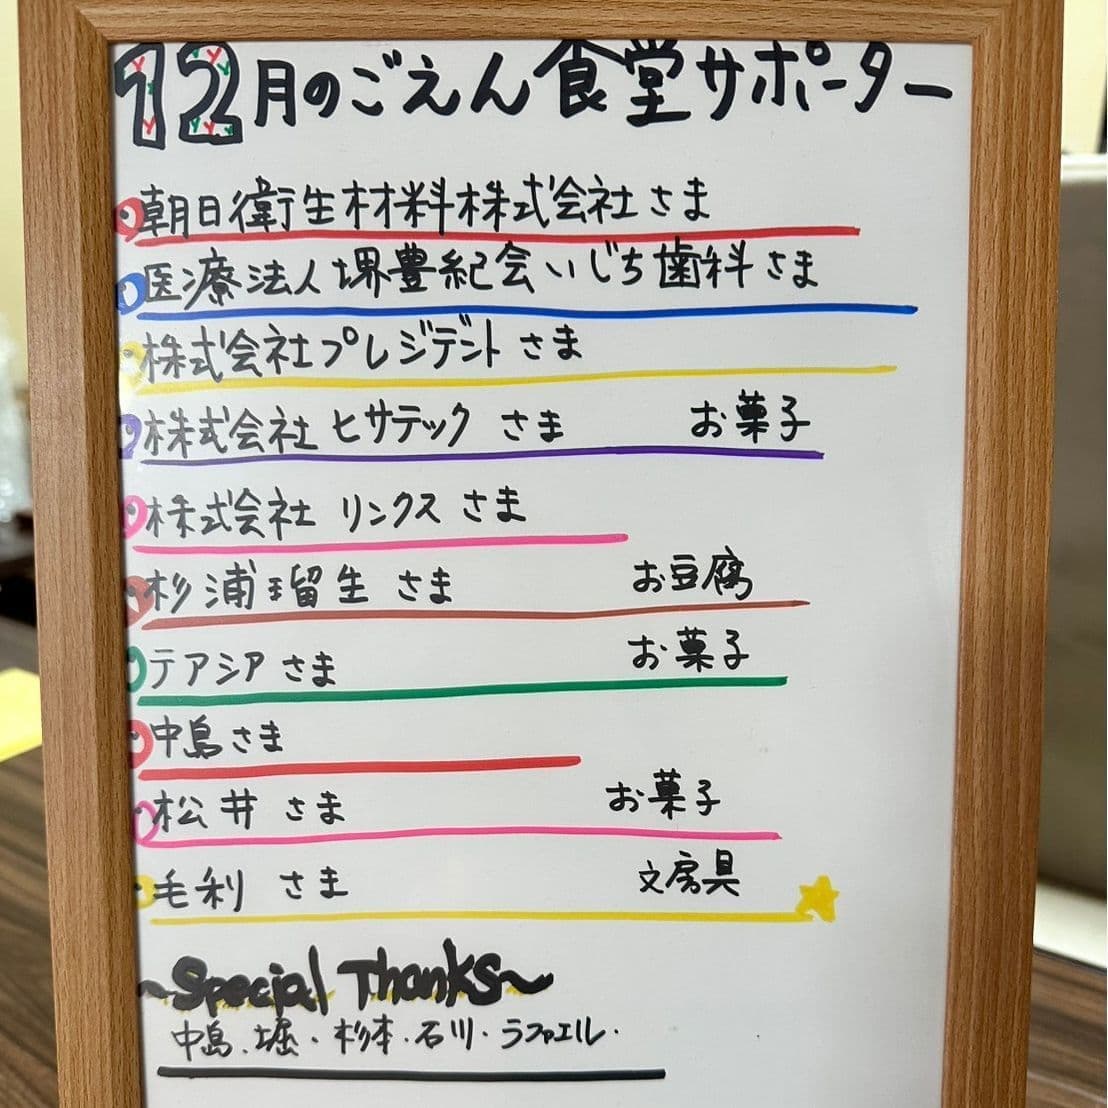 12月のごえん食堂サポーター
朝日衛生材料株式会社さま
医療法人堺豊紀会いじち歯科さま
株式会社プレジデントさま
株式会社ヒサテックさま お菓子
株式会社リンクスさま
杉浦瑠生さま お豆腐
テアシアさま お菓子
中島さま
松井さま お菓子
毛利さま 文房具
~Special Thanks~
中島・堀・杉本・石川・ラファエル・